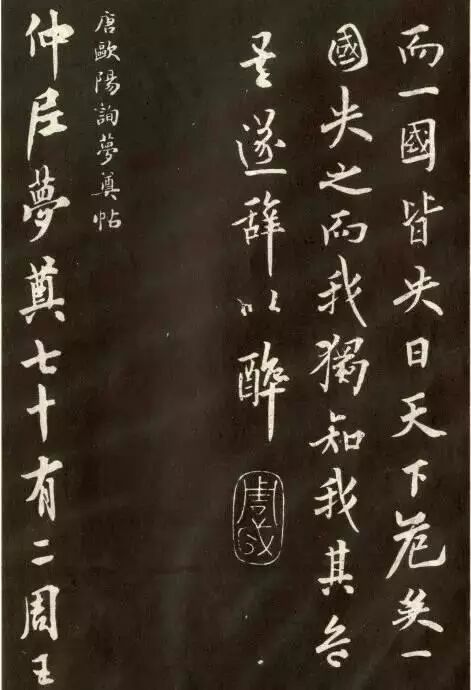 而一國皆失日天下危矣一
國失之而我獨知我其危
矣遂辞以醉
唐歐陽詢夢奠帖
仲尼夢奠七十有二周王